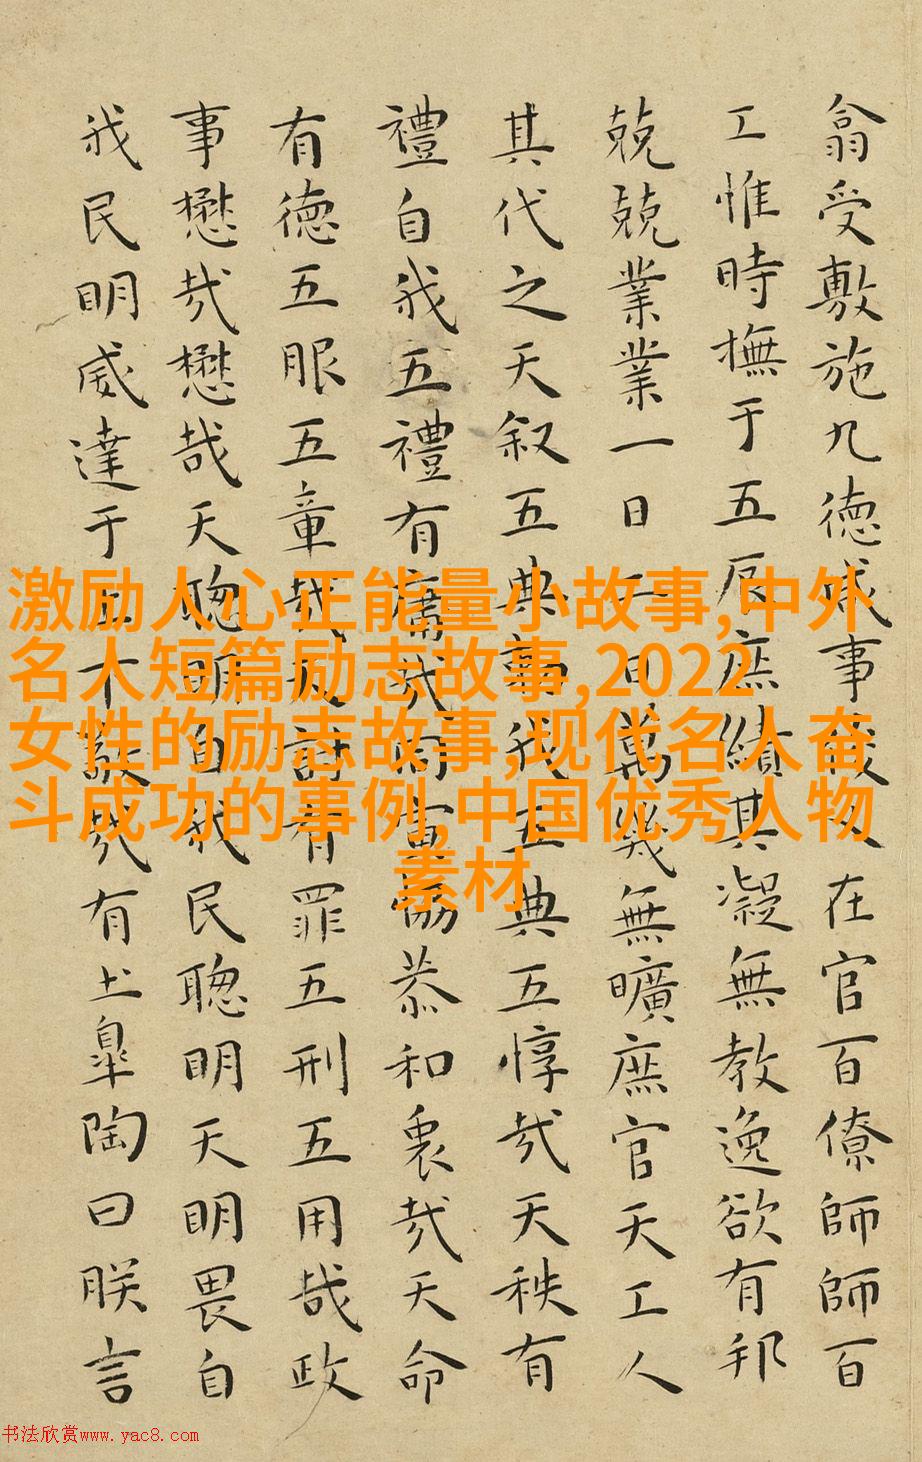 翕受敷施九德咸事俊乂在官百僚師師百
工惟時撫于五辰庶績其凝無教逸欲有邦
兢兢業業一日二日萬幾無曠庶官天工人
其代之天叙五典勅我五典五惇哉天秩有
禮自我五禮有庸哉同寅協恭和衷哉天命
有德五服五章哉天討有罪五刑五用哉政
事懋哉懋哉天聰明自我民聰明天明畏自
我民明威達于上下敬哉有土皐陶曰朕言
激励人心正能量小故事,中外
名人短篇励志故事,2022
女性的励志故事,现代名人奋
斗成功的事例,中国优秀人物
素材
书法欣赏www.yac8.com